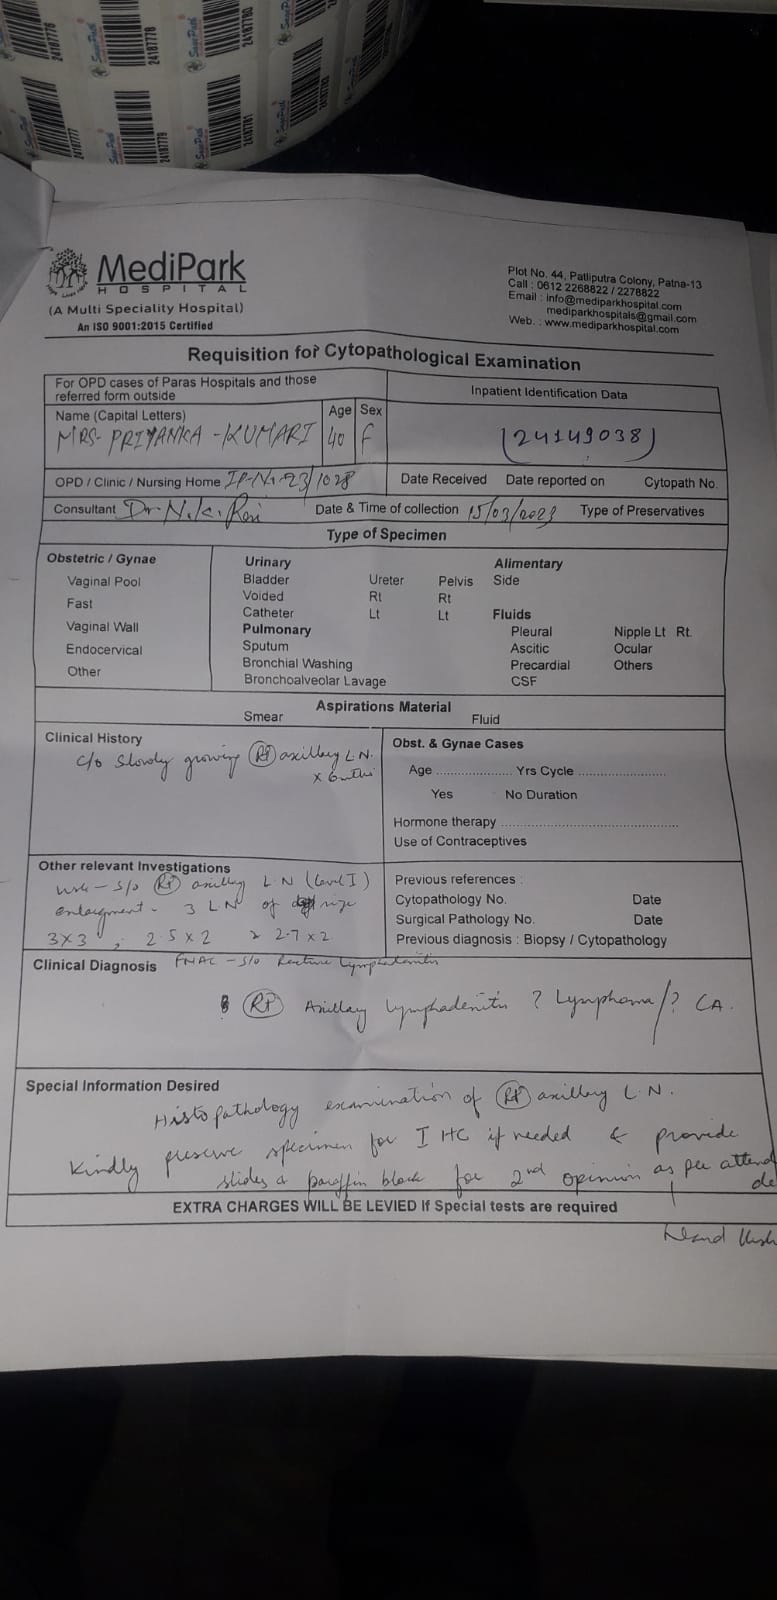 24187778
24187778
24187780
24187777
24187779
24187781
24187782
SaarPath
MediPark
HOSPITAL
(A Multi Speciality Hospital)
An ISO 9001:2015 Certified
Plot No. 44, Patliputra Colony, Patna-13
Call : 0612 2268822 / 2278822
Email : info@mediparkhospital.com
mediparkhospitals@gmail.com
Web. : www.mediparkhospital.com
Requisition for Cytopathological Examination
For OPD cases of Paras Hospitals and those
referred form outside
Inpatient Identification Data
Name (Capital Letters) Age Sex
MRS- PRIYANKA - KUMARI 40 F
(24149038)
OPD / Clinic / Nursing Home IP-No-23/1028 Date Received Date reported on Cytopath No.
Consultant Dr. N.K. Date & Time of collection 15/03/2023 Type of Preservatives
Type of Specimen
Obstetric / Gynae
Vaginal Pool
Fast
Vaginal Wall
Endocervical
Other
Urinary
Bladder Ureter Pelvis
Voided Rt Rt
Catheter Lt Lt
Pulmonary
Sputum
Bronchial Washing
Bronchoalveolar Lavage
Alimentary
Side
Fluids
Pleural Nipple Lt Rt.
Ascitic Ocular
Precardial Others
CSF
Aspirations Material
Smear Fluid
Clinical History
c/o slowly growing Rt axillary L.N.
x 6
Obst. & Gynae Cases
Age .................... Yrs Cycle .......................
Yes No Duration
Hormone therapy ..............................................
Use of Contraceptives
Other relevant Investigations
s/o Rt axillary L.N (level I)
enlargment - 3 LN of size
3x3 , 2.5 x 2 2.7 x 2
Previous references :
Cytopathology No. Date
Surgical Pathology No. Date
Previous diagnosis : Biopsy / Cytopathology
Clinical Diagnosis FNAC - S/o lymphadenitis
Rt Axillary lymphadenitis ? Lymphoma/? CA.
Special Information Desired
Histopathology examination of Rt axillary L.N.
Kindly preserve specimen for IHC if needed & provide
slides & paraffin block for 2nd opinion as per attend
de
EXTRA CHARGES WILL BE LEVIED If Special tests are required